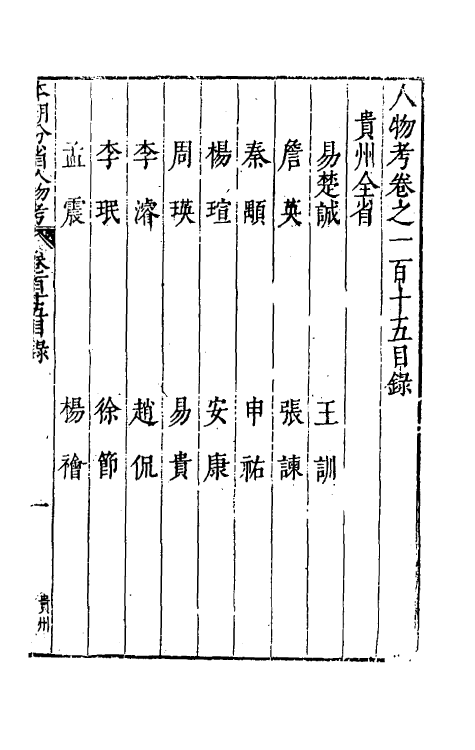 人物考卷之一百十五目錄
貴州全省
易楚誠 王訓
詹英 張諫
秦顒 申祐
楊瑄 安康
周瑛 易貴
李濬 趙侃
李珉 徐節
孟震 楊襘
本朝分省人物考 卷百十五目錄 一 貴州